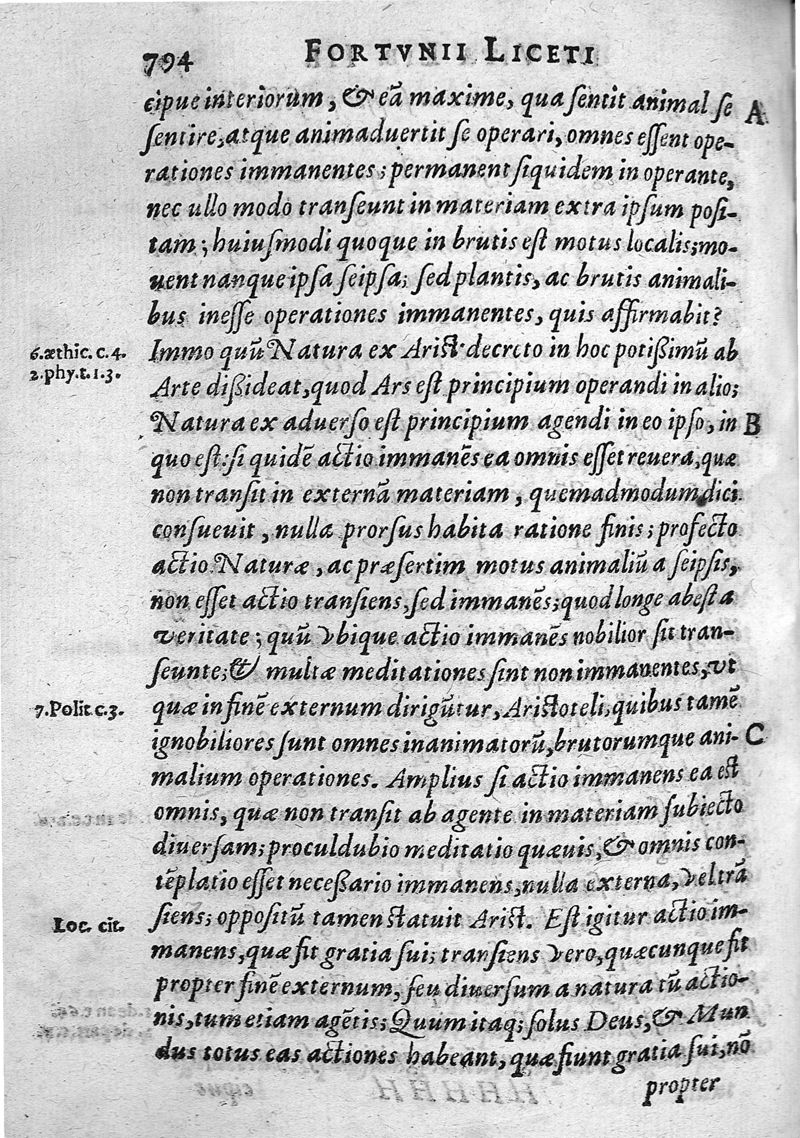 794 FORTVNII LICETI
cipue interiorum, & eã maxime, qua sentit animal se A
sentire, atque animaduertit se operari, omnes essent ope-
rationes immanentes; permanent siquidem in operante,
nec ullo modo transeunt in materiam extra ipsum posi-
tam; huiusmodi quoque in brutis est motus localis; mo-
uent nanque ipsa seipsa; sed plantis, ac brutis animali-
bus inesse operationes immanentes, quis affirmabit?
6.æthic. c. 4. Immo quũ Natura ex Arist. decreto in hoc potißimũ ab
2.phy.t.1.3. Arte dißideat, quod Ars est principium operandi in alio;
Natura ex aduerso est principium agendi in eo ipso, in B
quo est: si quidẽ actio immanẽs ea omnis esset reuera, quæ
non transit in externã materiam, quemadmodum dici
consueuit, nulla prorsus habita ratione finis; profecto
actio Naturæ, ac præsertim motus animaliũ a seipsis,
non esset actio transiens, sed immanẽs; quod longe abest a
veritate; quũ vbique actio immanẽs nobilior sit tran-
seunte; & multæ meditationes sint non immanentes, vt
7.Polit.c.3. quæ in finẽ externum dirigũtur, Aristoteli, quibus tamẽ
ignobiliores sunt omnes inanimatorũ, brutorumque ani- C
malium operationes. Amplius si actio immanens ea est
omnis, quæ non transit ab agente in materiam subiecto
diuersam; proculdubio meditatio quæuis, & omnis con-
tẽplatio esset necessario immanens, nulla externa, vel trã
Loc. cit. siens; oppositũ tamen statuit Arist. Est igitur actio im-
manens, quæ fit gratia sui; transiens vero, quæcunque fit
propter finẽ externum, seu diuersum a natura tũ actio-
nis, tum etiam agẽtis; Quum itaq; solus Deus, & Mun
dus totus eas actiones habeant, quæ fiunt gratia sui, nõ
propter